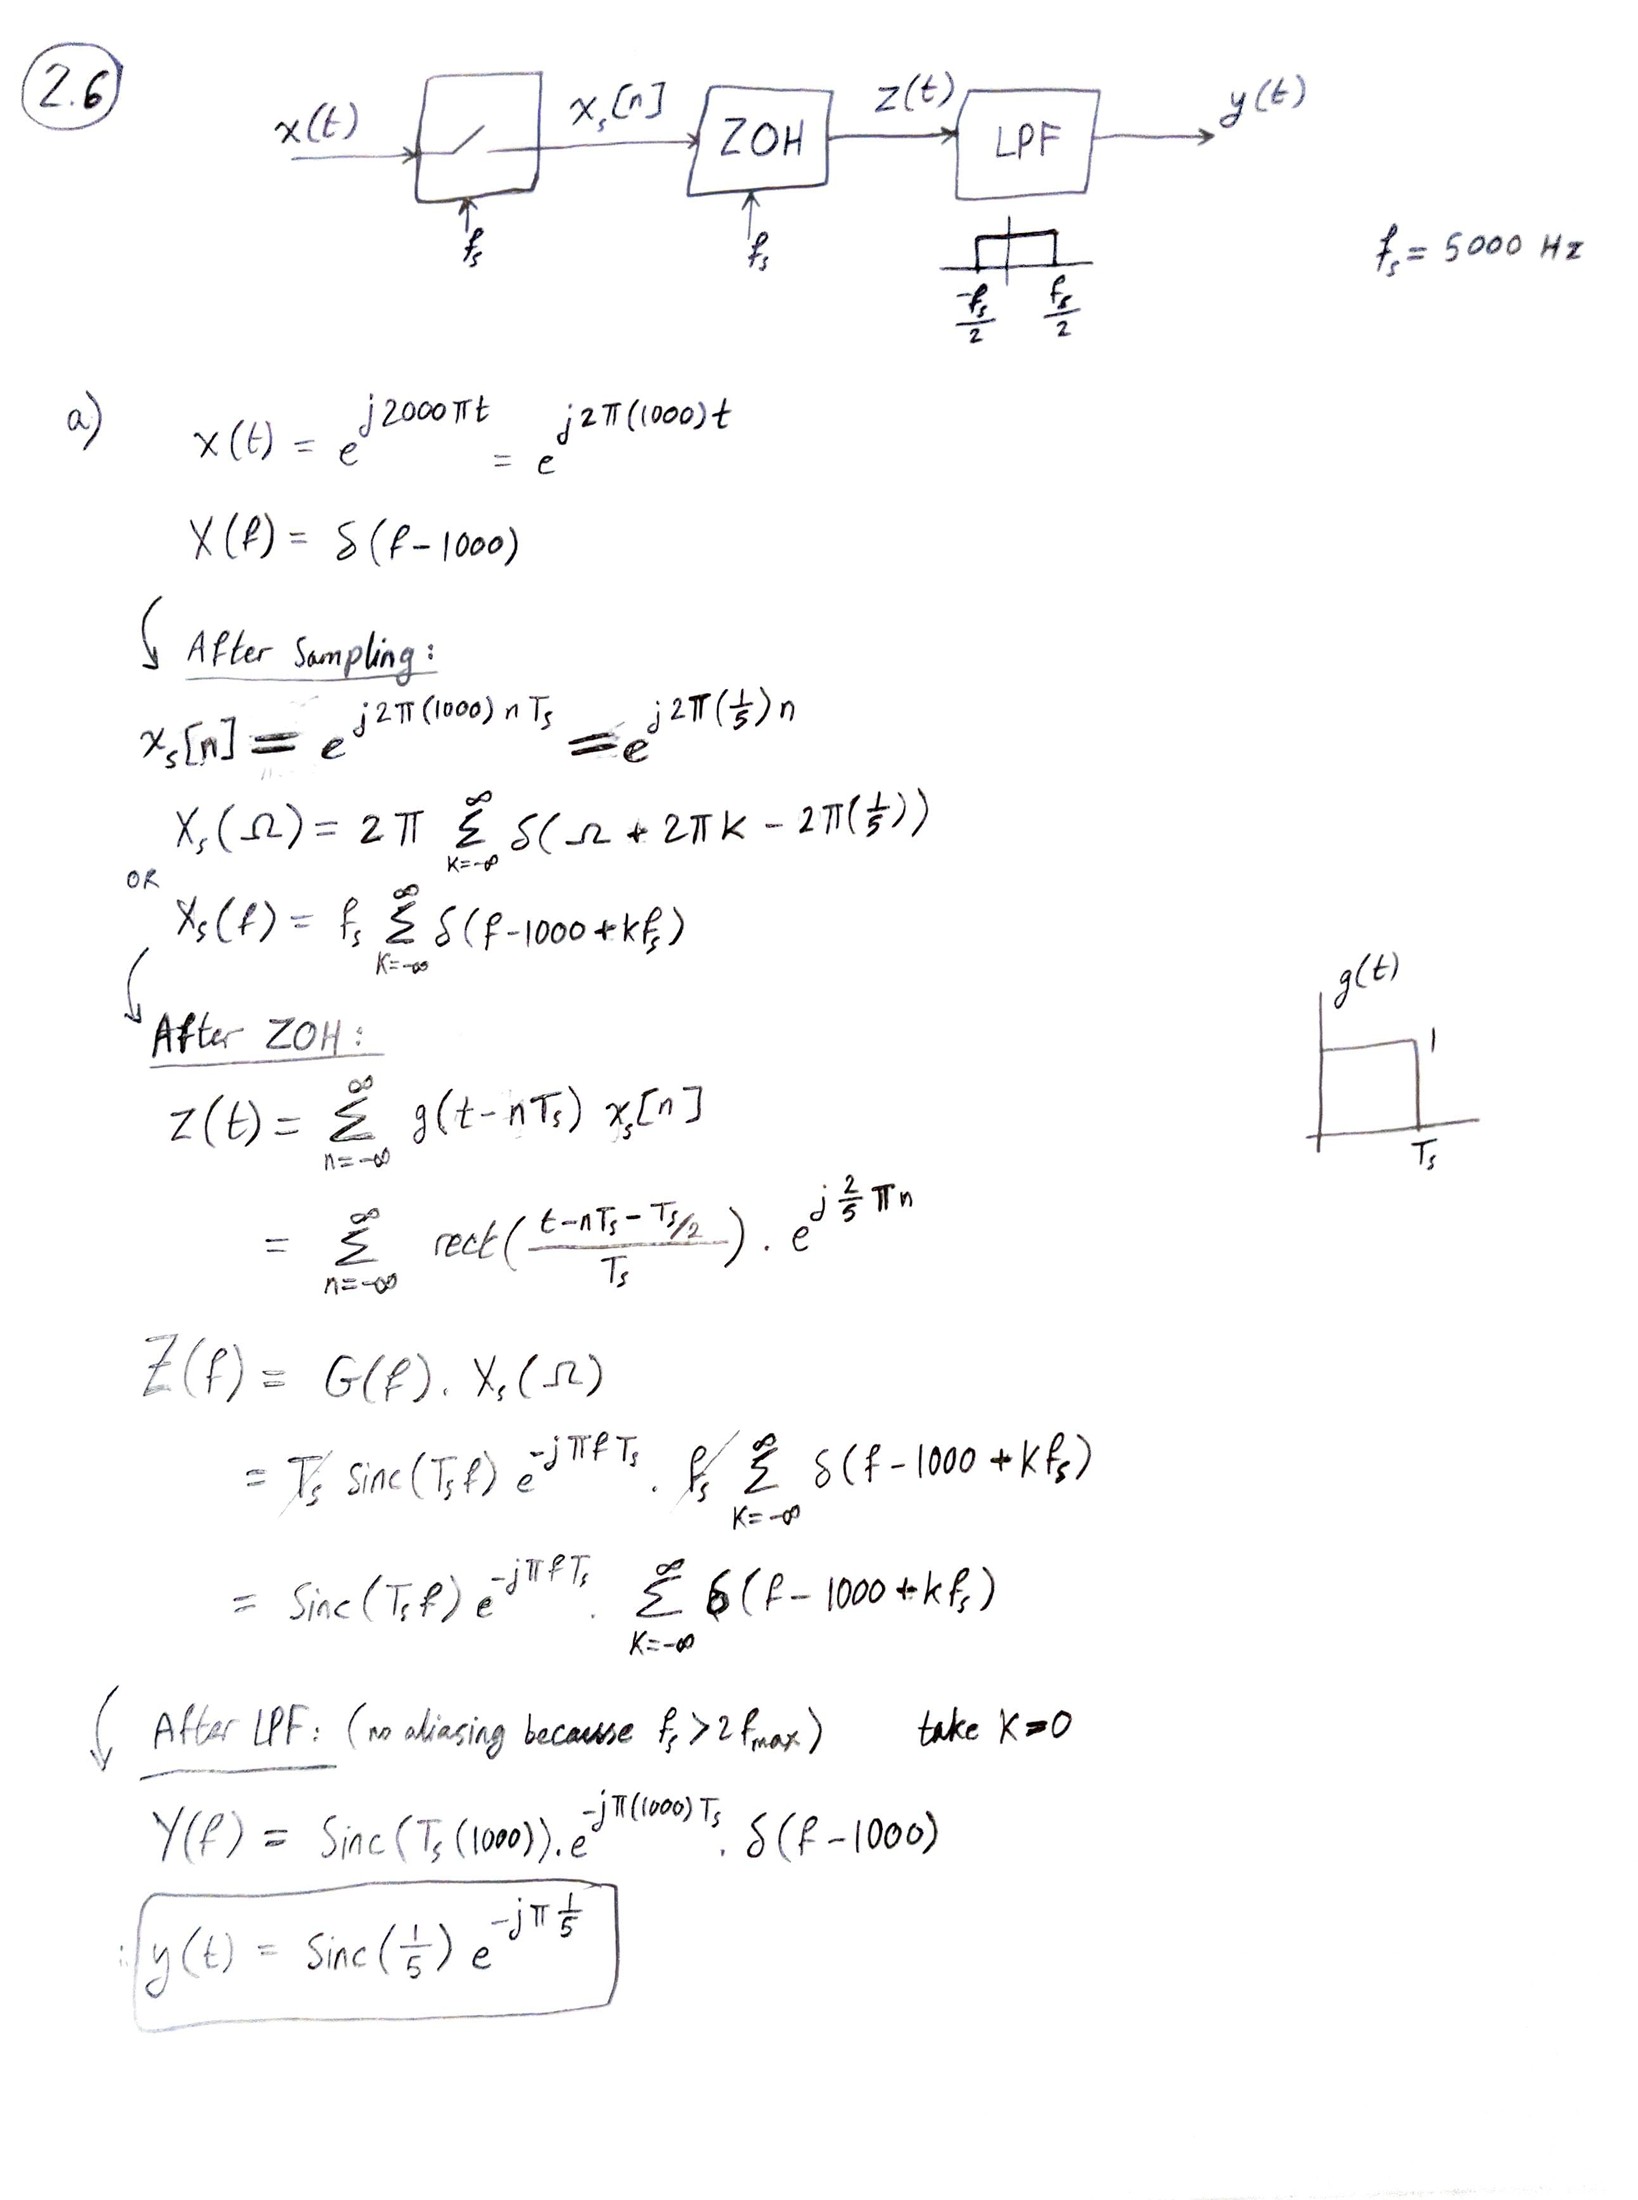 2.6
x(t) x_s[n] ZOH z(t) LPF y(t)
f_s f_s -f_s/2 f_s/2 f_s = 5000 Hz
a) x(t) = e^{j2000πt} = e^{j2π(1000)t}
X(f) = δ(f-1000)
After Sampling:
x_s[n] = e^{j2π(1000)nT_s} = e^{j2π(1/5)n}
X_s(Ω) = 2π Σ_{k=-∞}^{∞} δ(Ω + 2πk - 2π(1/5))
OR
X_s(f) = f_s Σ_{k=-∞}^{∞} δ(f-1000+kf_s)
g(t)
1
T_s
After ZOH:
z(t) = Σ_{n=-∞}^{∞} g(t-nT_s) x_s[n]
= Σ_{n=-∞}^{∞} rect((t-nT_s-T_s/2)/T_s) . e^{j(2/5)πn}
Z(f) = G(f). X_s(Ω)
= T_s Sinc(T_s f) e^{-jπfT_s} . f_s Σ_{k=-∞}^{∞} δ(f-1000+kf_s)
= Sinc(T_s f) e^{-jπfT_s} . Σ_{k=-∞}^{∞} δ(f-1000+kf_s)
After LPF: (no aliasing because f_s > 2f_max) take k=0
Y(f) = Sinc(T_s(1000)).e^{-jπ(1000)T_s} . δ(f-1000)
∴ y(t) = Sinc(1/5) e^{-jπ1/5}